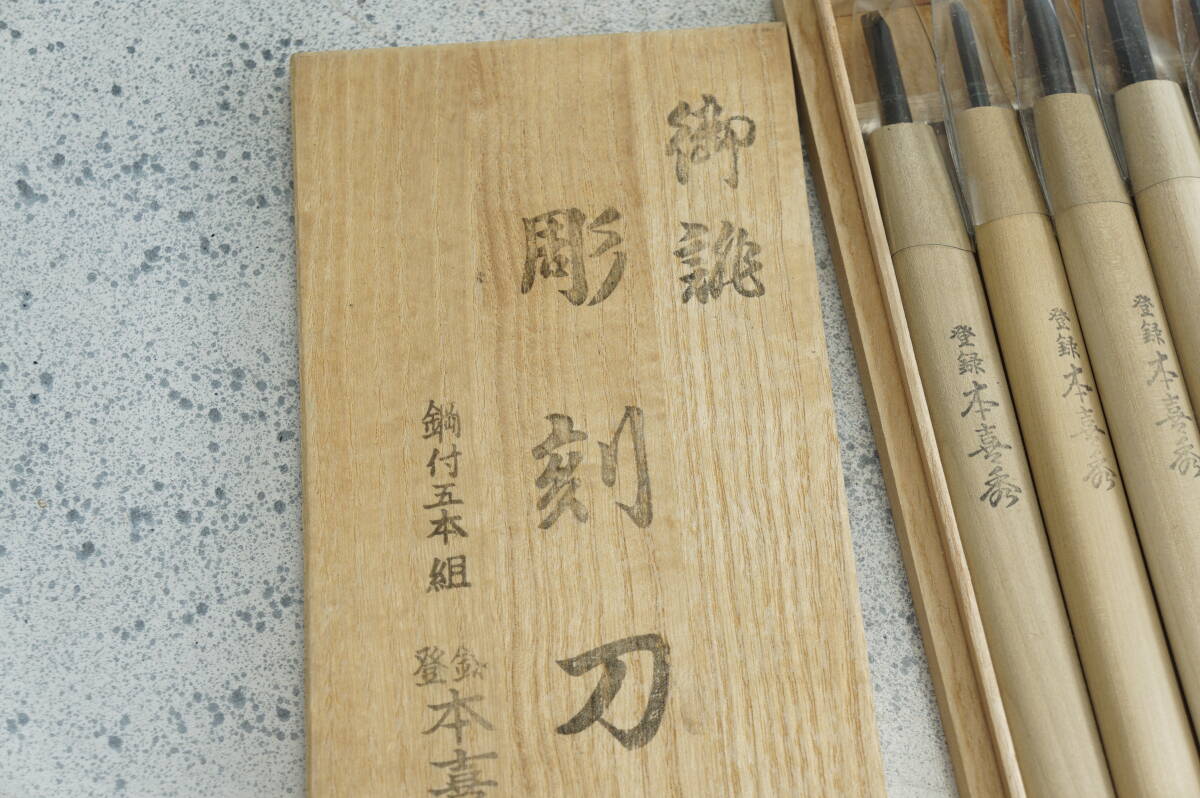 御誂
彫刻刀
鋼付五本組
登録
本喜
登録
本喜秀
登録
本喜秀
登録
本喜秀